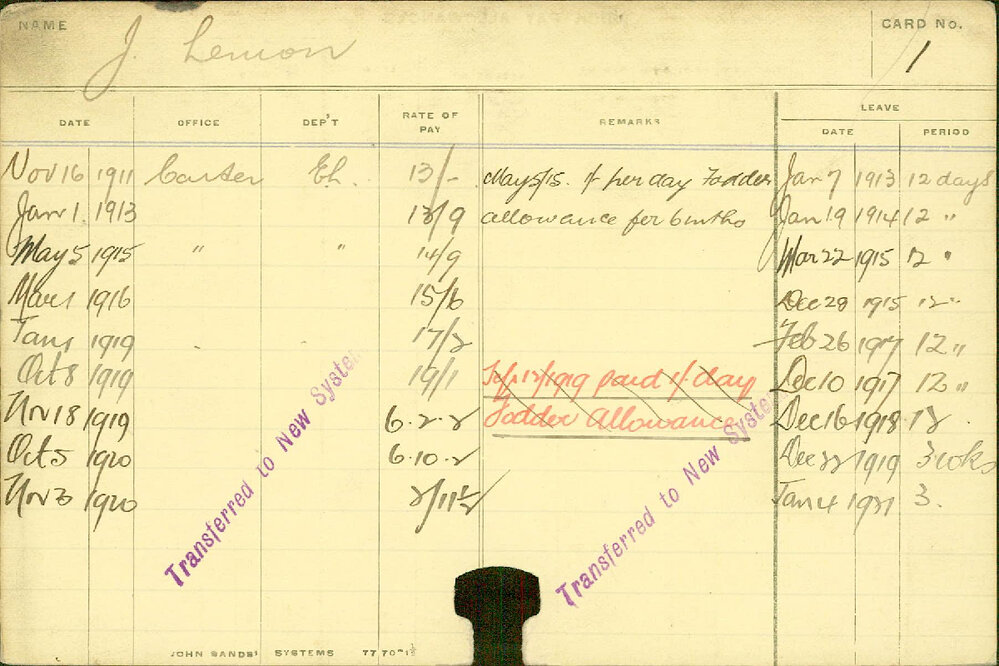 NAME J. Lemon CARD No. 1
DATE OFFICE DEP'T RATE OF PAY REMARKS LEAVE
DATE PERIOD
Nov 16 1911 Carter Eh. 13/- May 5/15. 1/ per day Fodder Jan 7 1913 12 days
Jan 1. 1913 13/9 allowance for 6 mths Jan 19 1914 12 "
May 5 1915 " " 14/9 Mar 22 1915 12 "
Mar 1 1916 15/6 Dec 28 1915 12 "
Jan 1 1919 17/2 Feb 26 1917 12 "
Oct 8 1919 19/1 1919 paid 1/ day Dec 10 1917 12 "
Nov 18 1919 6.2.2 Fodder Allowance Dec 16 1918 12
Oct 5 1920 6.10.2 Dec 22 1919 3 wks
Nov 1920 2/11½ Jan 4 1921 3.
Transferred to New System
Transferred to New System
JOHN SANDS' SYSTEMS